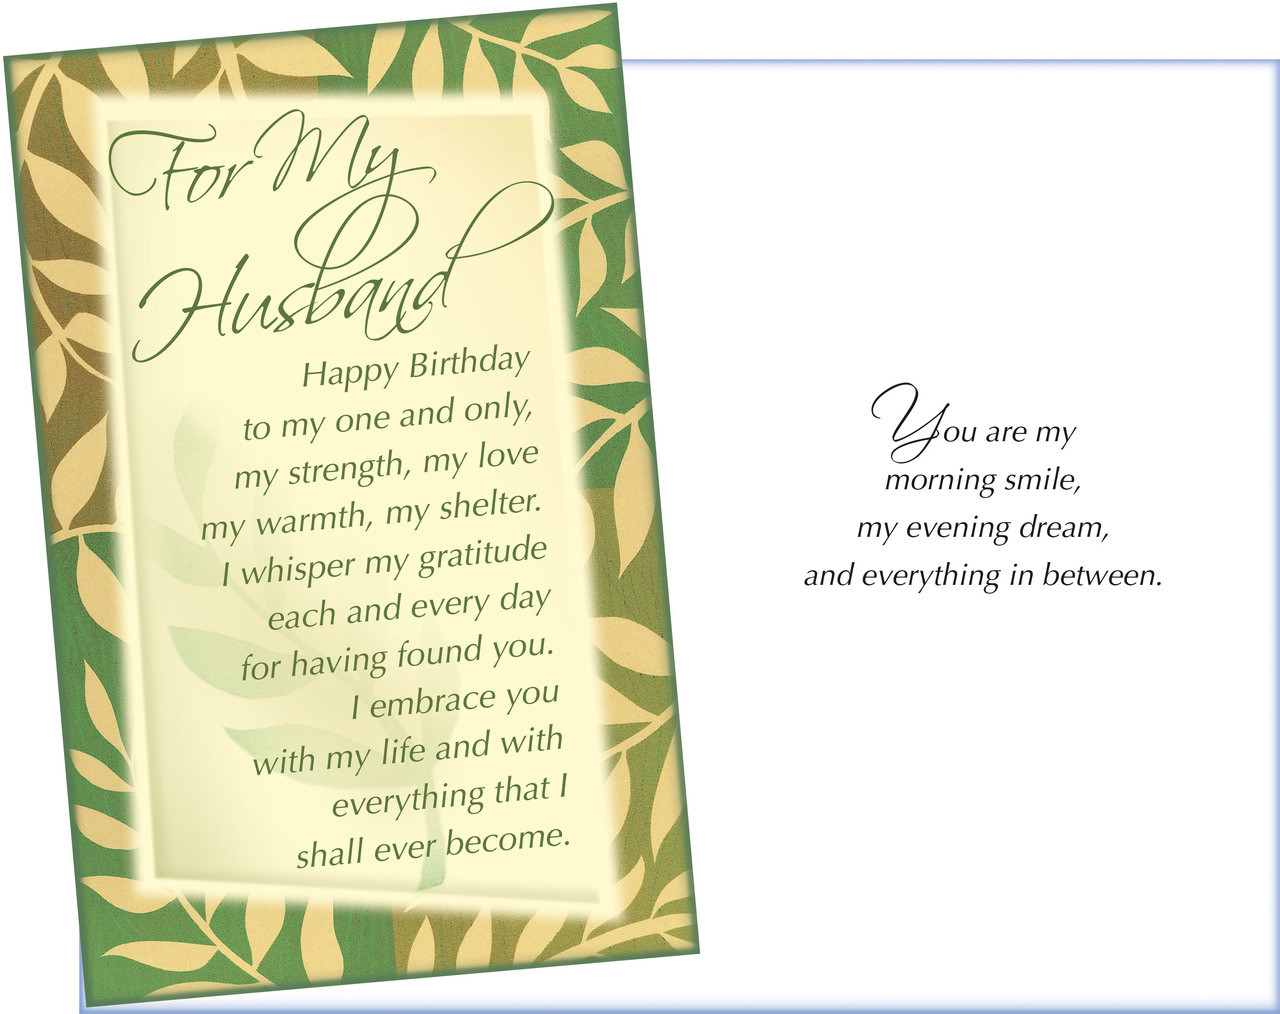 For My
Husband
Happy Birthday
to my one and only,
my strength, my love
my warmth, my shelter.
I whisper my gratitude
each and every day
for having found you.
I embrace you
with my life and with
everything that I
shall ever become.
You are my
morning smile,
my evening dream,
and everything in between.